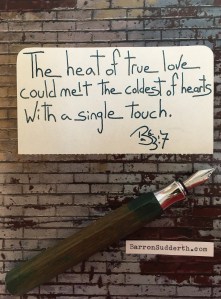 The heat of true love
could melt the coldest of hearts
with a single touch.
BarronSudderth.com